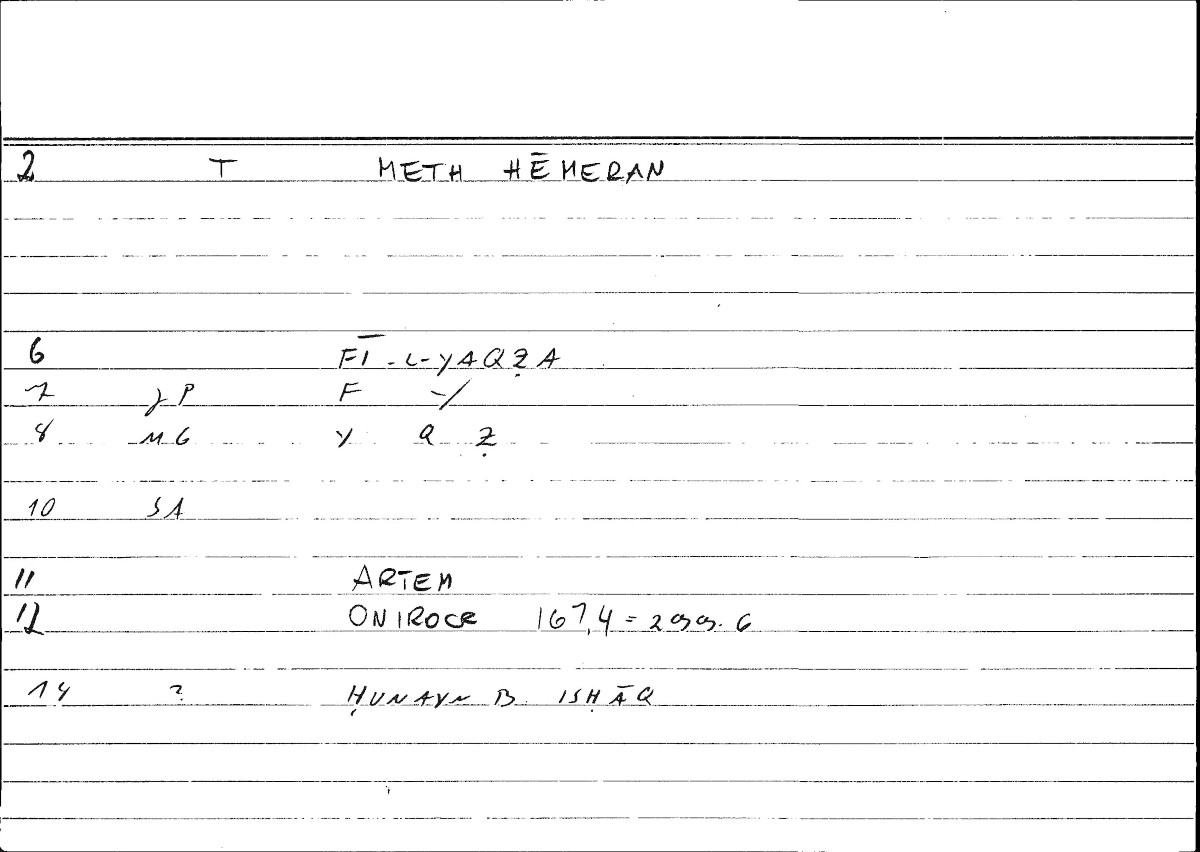 2 T METH HĒMERAN
6 FĪ-L-YAQẒA
7 JP F -/
8 MG Y Q Ẓ
10 SA
11 ARTEM
12 ONIROCR 167,4 = 299.6
14 ? ḤUNAYN B. ISḤĀQ